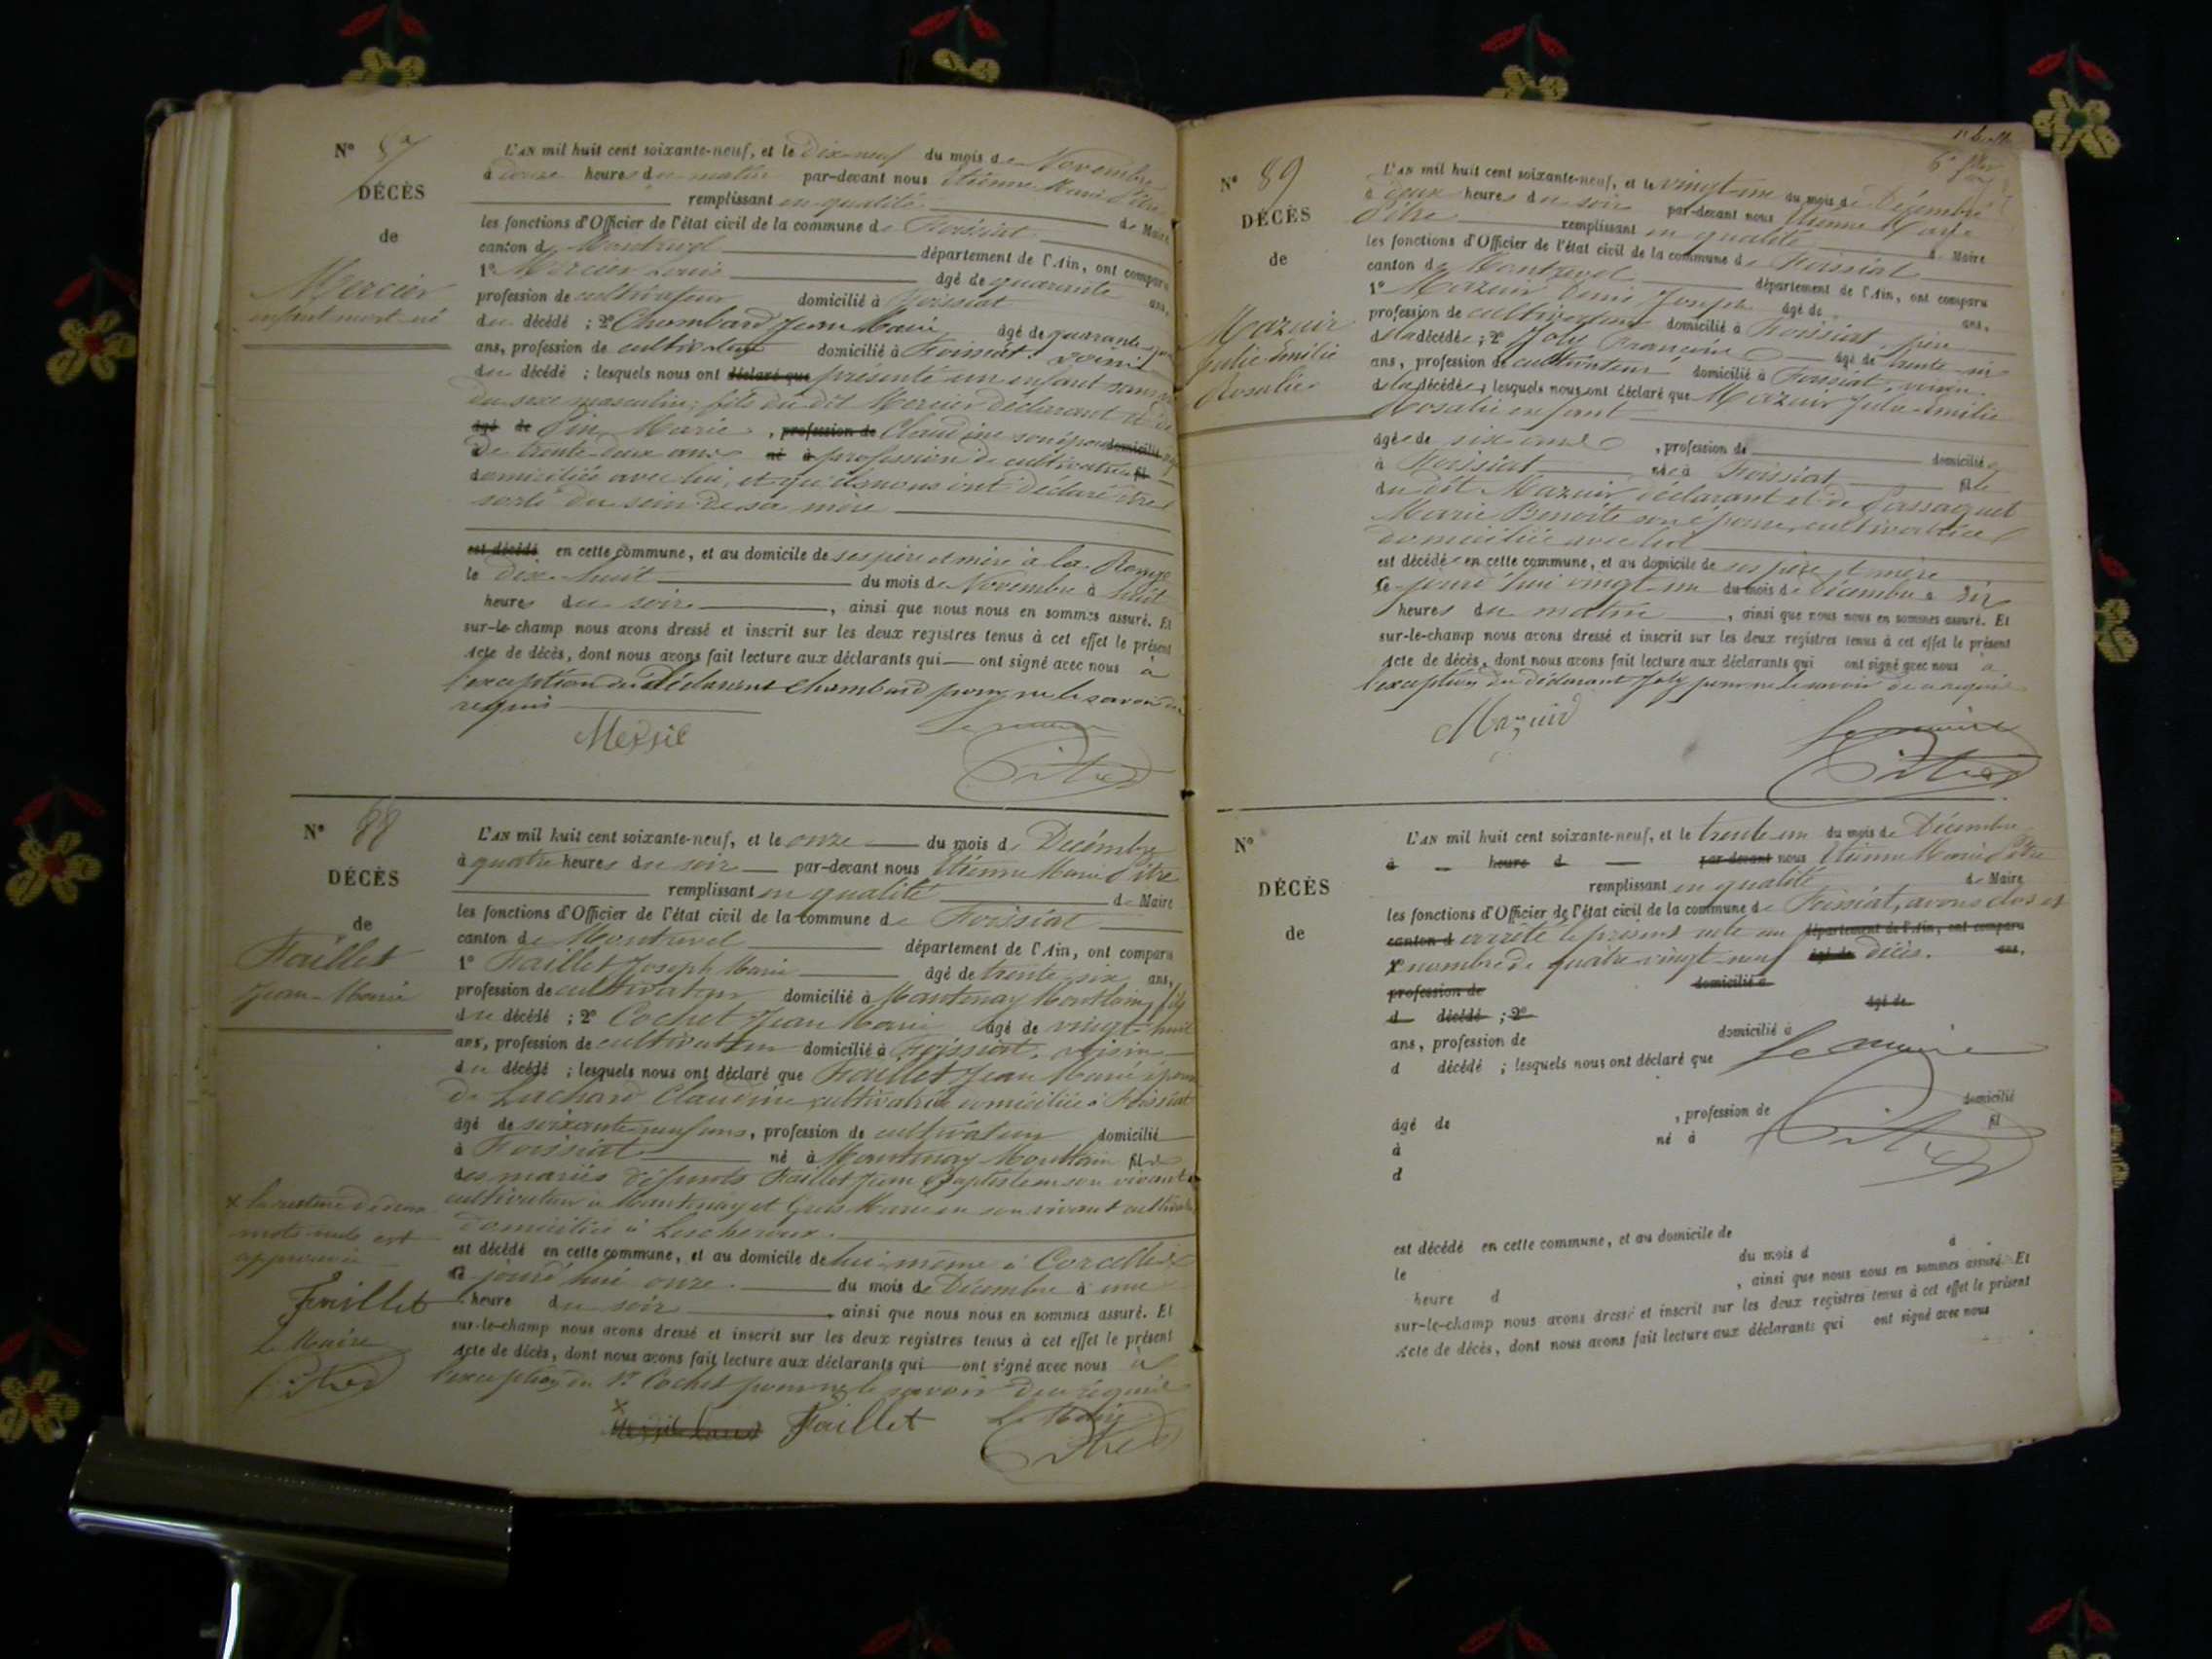 N° 87
DÉCÈS
de
Mercier
enfant mort-né
L'AN mil huit cent soixante-neuf, et le dix-neuf du mois de Novembre
à onze heures du matin par-devant nous Etienne Marie Pitre
remplissant en qualité de Maire
les fonctions d'Officier de l'état civil de la commune de Foissiat
canton de Montrevel département de l'Ain, ont comparu
1° Mercier Louis âgé de quarante ans,
profession de cultivateur domicilié à Foissiat
du décédé ; 2° Chambard Jean Marie âgé de quarante
ans, profession de cultivateur domicilié à Foissiat voisin
du décédé ; lesquels nous ont déclaré que présenté un enfant sans vie
du sexe masculin; fils du dit Mercier déclarant et de
âgé de Pin Marie , profession de Claudine son épouse domicilié
de trente-deux ans né à profession de cultivatrice fil
domiciliée avec lui, et qu'ils nous ont déclaré être
sorti du sein de sa mère
est décédé en cette commune, et au domicile de ses père et mère à la
le dix-huit du mois de Novembre à huit
heures du soir , ainsi que nous nous en sommes assuré. Et
sur-le-champ nous avons dressé et inscrit sur les deux registres tenus à cet effet le présent
Acte de décès, dont nous avons fait lecture aux déclarants qui ont signé avec nous à
l'exception du déclarant Chambard pour ne le savoir de
requis
Le maire
Pitre
N° 88
DÉCÈS
de
Faillet
Jean-Marie
L'AN mil huit cent soixante-neuf, et le onze du mois de Décembre
à quatre heures du soir par-devant nous Etienne Marie Pitre
remplissant en qualité de Maire
les fonctions d'Officier de l'état civil de la commune de Foissiat
canton de Montrevel département de l'Ain, ont comparu
1° Faillet Joseph Marie âgé de trente-six ans,
profession de cultivateur domicilié à Mantenay Montlain, fils
du décédé ; 2° Cochet Jean Marie âgé de vingt-huit
ans, profession de cultivateur domicilié à Foissiat, voisin
du décédé ; lesquels nous ont déclaré que Faillet Jean Marie époux
de Luchard Claudine cultivatrice domiciliée à Foissiat
âgé de soixante-neuf ans, profession de cultivateur domicilié
à Foissiat né à Mantenay Montlain fils
des mariés défunts Faillet Jean Baptiste en son vivant
cultivateur à Mantenay et Marie en son vivant
domiciliée à Lescheroux.
est décédé en cette commune, et au domicile de lui-même à Corcelles
le jourd'hui onze du mois de Décembre à une
heure du soir , ainsi que nous nous en sommes assuré. Et
sur-le-champ nous avons dressé et inscrit sur les deux registres tenus à cet effet le présent
Acte de décès, dont nous avons fait lecture aux déclarants qui ont signé avec nous à
l'exception du Sr Cochet pour ne le savoir de requis
x Faillet Le Maire
Pitre
x la rature de deux
mots nuls est
approuvée
Faillet
Le Maire
Pitre
N° 89
DÉCÈS
de
Mazuir
Julie-Emilie
Rosalie
L'AN mil huit cent soixante-neuf, et le vingt-un du mois de Décembre
à deux heures du soir par-devant nous Etienne Marie
Pitre remplissant en qualité de Maire
les fonctions d'Officier de l'état civil de la commune de Foissiat
canton de Montrevel département de l'Ain, ont comparu
1° Mazuir Denis Joseph âgé de ans,
profession de cultivateur domicilié à Foissiat, père
de la décédée ; 2° Joly François âgé de trente-six
ans, profession de cultivateur domicilié à Foissiat, voisin
de la décédée ; lesquels nous ont déclaré que Mazuir Julie-Emilie
Rosalie enfant
âgée de six , profession de domiciliée
à Foissiat née à Foissiat fille
du dit Mazuir déclarant et de Passaquet
Marie Benoite son épouse, cultivatrice
domiciliée avec lui
est décédée en cette commune, et au domicile de ses père et mère
Ce jourd'hui vingt-un du mois de Décembre à dix
heures du matin , ainsi que nous nous en sommes assuré. Et
sur-le-champ nous avons dressé et inscrit sur les deux registres tenus à cet effet le présent
Acte de décès, dont nous avons fait lecture aux déclarants qui ont signé avec nous à
l'exception du déclarant Joly pour ne le savoir de ce requis
Mazuir
Le maire
Pitre
N°
DÉCÈS
de
L'AN mil huit cent soixante-neuf, et le trente-un du mois de Décembre
à heure d par-devant nous Etienne Marie Pitre
remplissant en qualité de Maire
les fonctions d'Officier de l'état civil de la commune de Foissiat, avons clos et
canton d arrêté le présent acte au département de l'Ain, ont comparu
nombre de quatre-vingt-neuf âgé de décès. ans,
profession de domicilié à
d décédé ; 2° âgé de
ans, profession de domicilié à
d décédé ; lesquels nous ont déclaré que
Le maire
Pitre
âgé de , profession de domicilié
à né à fil
d
est décédé en cette commune, et au domicile de
le du mois d à
heure d , ainsi que nous nous en sommes assuré. Et
sur-le-champ nous avons dressé et inscrit sur les deux registres tenus à cet effet le présent
Acte de décès, dont nous avons fait lecture aux déclarants qui ont signé avec nous